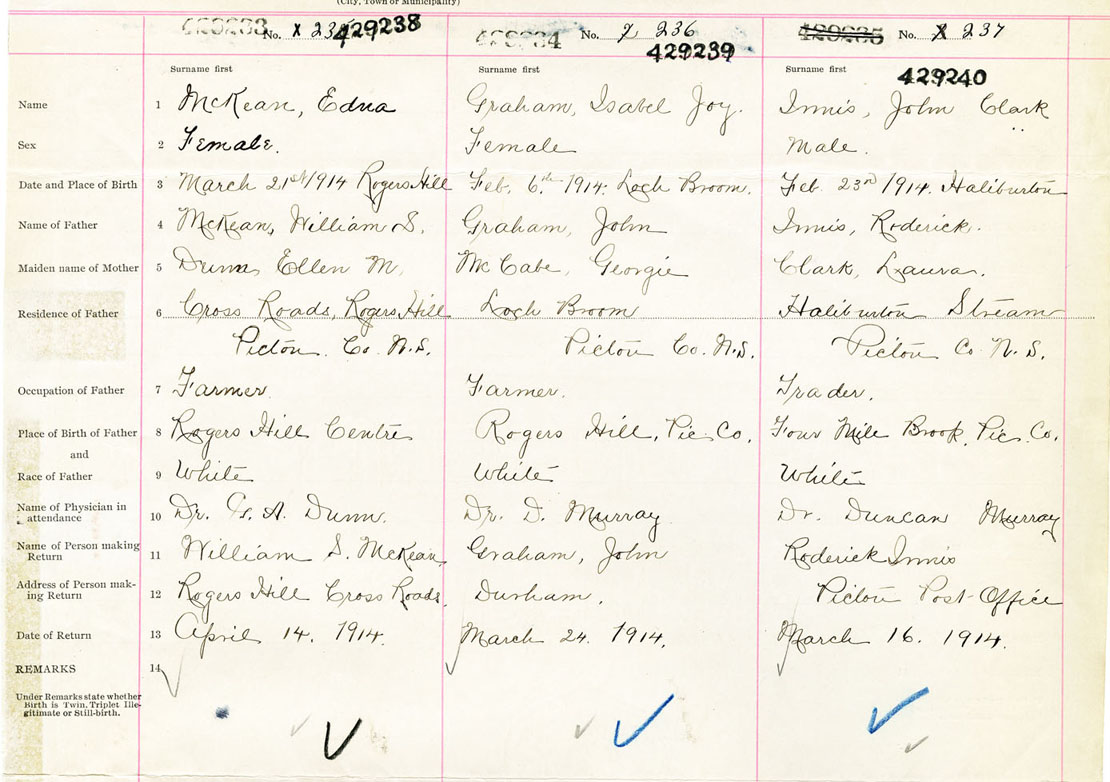 (City, Town or Municipality)
No. 429238
No. 236 429239
No. 237 429240
Surname first Surname first Surname first
Name 1 McKean, Edna Graham, Isabel Joy. Innis, John Clark
Sex 2 Female. Female Male.
Date and Place of Birth 3 March 21st 1914 Rogers Hill Feb. 6th 1914. Loch Broom. Feb. 23rd 1914. Haliburton
Name of Father 4 McKean, William S. Graham, John Innis, Roderick.
Maiden name of Mother 5 Dunn, Ellen M. McCabe, Georgie Clark, Laura.
Residence of Father 6 Cross Roads, Rogers Hill Loch Broom Haliburton Stream
Pictou Co. N.S. Pictou Co. N.S. Pictou Co. N.S.
Occupation of Father 7 Farmer Farmer. Trader.
Place of Birth of Father 8 Rogers Hill Centre Rogers Hill, Pic. Co. Four Mile Brook, Pic. Co.
and
Race of Father 9 White White White
Name of Physician in
attendance 10 Dr. A. Dunn. Dr. D. Murray Dr. Duncan Murray
Name of Person making
Return 11 William S. McKean Graham, John Roderick Innis
Address of Person mak-
ing Return 12 Rogers Hill Cross Roads. Durham. Pictou Post-Office
Date of Return 13 April 14. 1914. March 24. 1914. March 16. 1914.
REMARKS 14
Under Remarks state whether
Birth is Twin, Triplet Ille-
gitimate or Still-birth.